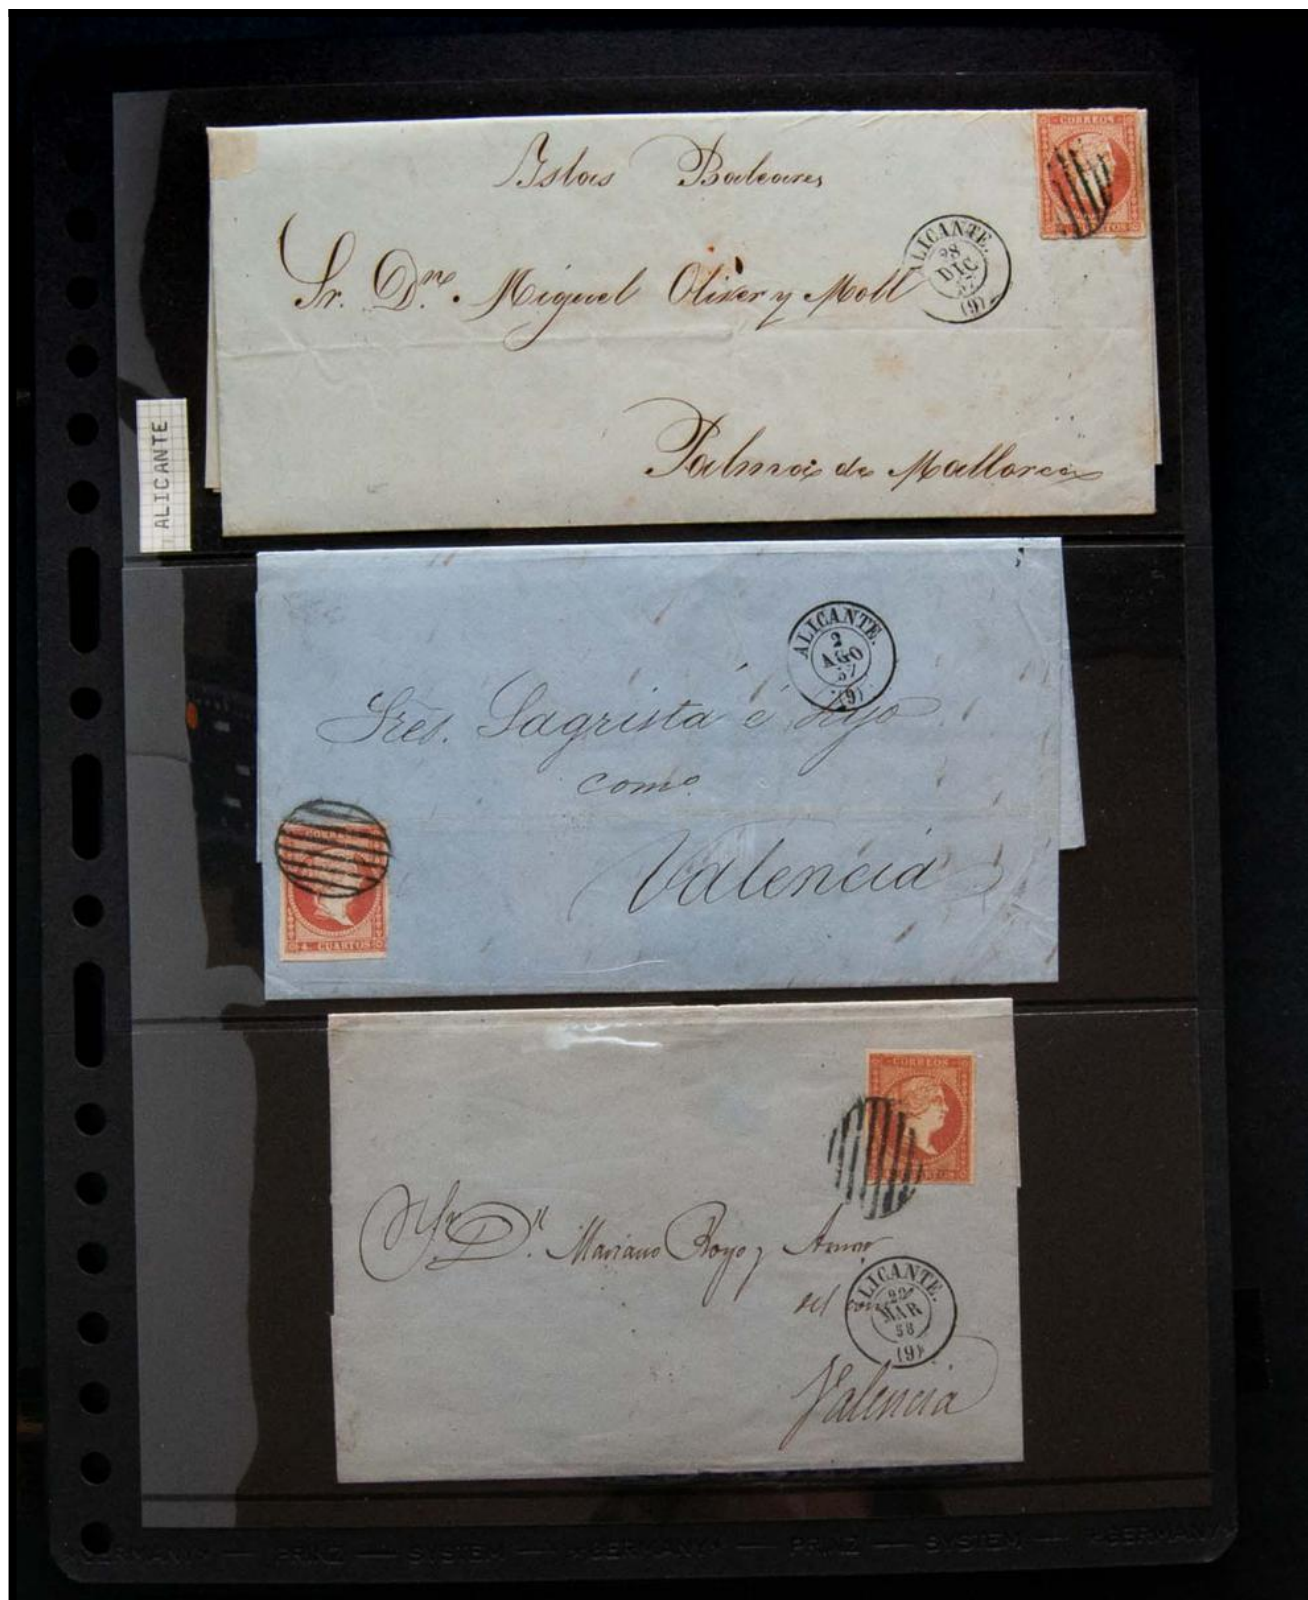 ALICANTE
CORREOS
Islas Baleares
ALICANTE.
28
DIC
57
(9)
Sr. Dn. Miguel Oliver y Moll
Palma de Mallorca
ALICANTE.
2
AGO
57
(9)
Sres. Sagrista é Hijo
como
Valencia
CORREOS
4 CUARTOS
CORREOS
Sr. Dn. Mariano Royo y
del
ALICANTE.
MAR
58
(9)
Valencia
GERMANY — PRINZ — SYSTEM — GERMANY — PRINZ — SYSTEM — GERMANY